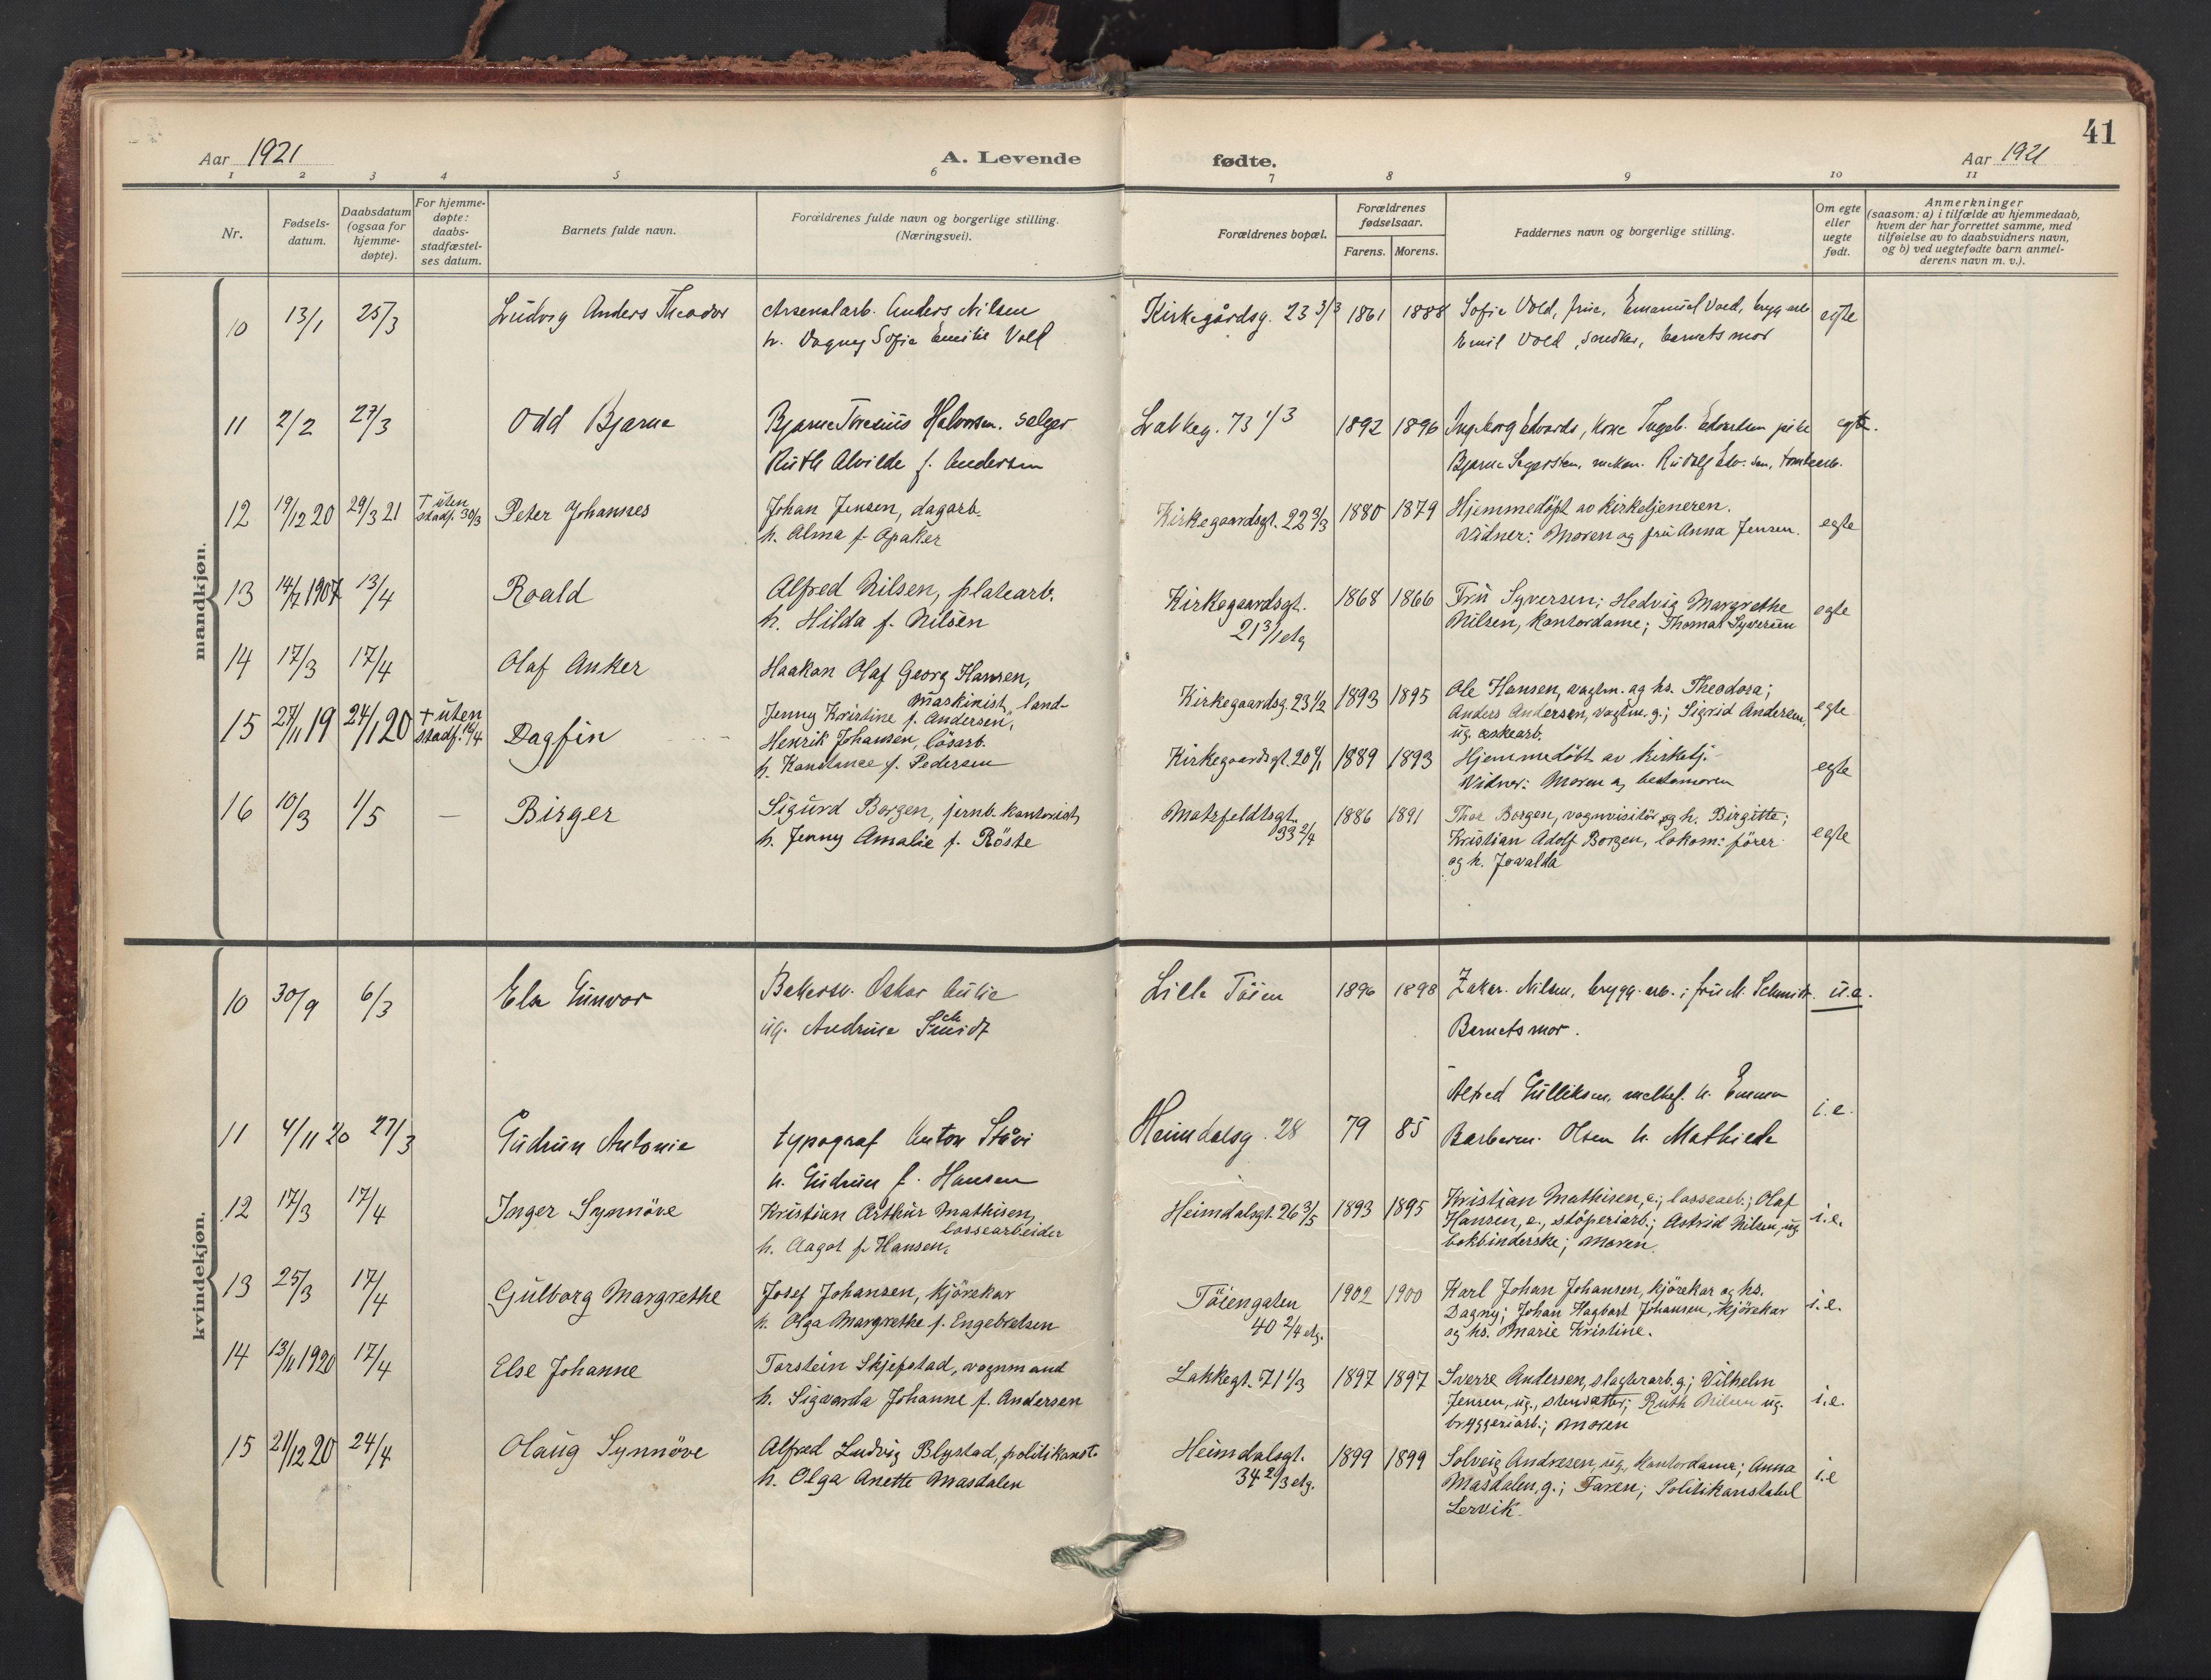 41
Aar 1921
A. Levende
fødte.
Aar 1921
1 2 3 4 5 6 7 8 9 10 11
Nr.
Fødsels-
datum.
Daabsdatum
(ogsaa for
hjemme-
døpte).
For hjemme-
døpte:
daabs-
stadfæstel-
ses datum.
Barnets fulde navn.
Forældrenes fulde navn og borgerlige stilling.
(Næringsvei).
Forældrenes bopæl.
Forældrenes
fødselsaar.
Farens. Morens.
Faddernes navn og borgerlige stilling.
Om egte
eller
uegte
født.
Anmerkninger
(saasom: a) i tilfælde av hjemmedaab,
hvem der har forrettet samme, med
tilføielse av to daabsvidners navn,
og b) ved uegtefødte barn anmel-
derens navn m. v.).
mandkjøn.
10 13/1 25/3 Ludvig Anders Theodor
Arsenalarb. Anders Nilsen
h. Dagny Sofie Emilie Voll
Kirkegårdsg. 23 3/3 1861 1888
Sofie Vold, frue, Emanuel Voed, brygg arb
Emil Vold, barnets mor
egte
11 2/2 27/3 Odd Bjarne
Bjarne Halvorsen. selger
Ruth Alvilde f. Andersen
Lakkeg. 73 1/3 1892 1896
Ingeborg Edvards, kone Ingeb. pike
Bjarne mekan. Rudolf
egte.
12 19/12 20 29/3 21 † uten
stadf. 30/3
Peter Johannes
Johan Jensen, dagarb.
h. Alma f. Opaker
Kirkegaardsgt. 22 3/3 1880 1879
Hjemmedöpt av kirketjeneren.
Vidner: Moren og fru Anna Jensen.
egte
13 14/7 1907 13/4 Roald
Alfred Nilsen, platearb.
h. Hilda f. Nilsen
Kirkegaardsgt.
21 3/1 etg
1868 1866
Fru Syversen; Hedvig Margrethe
Nilsen, kontordame; Thomas Syversen
egte
14 17/3 17/4 Olaf Anker
Haakon Olaf Georg Hansen,
maskinist, land-
Jenny Kristine f. Andersen,
Kirkegaardsg. 23 1/2 1893 1895
Ole Hansen, vagtm. og hs. Theodora;
Anders Andersen, vagtm. g.; Sigrid Andersen,
ug. eskearb.
egte
15 27/11 19 24/1 20 † uten
stadf. 19/4
Dagfin
Henrik Johansen, lösarb.
h. Konstance f. Pedersen
Kirkegaardsgt. 20 4/1 1889 1893
Hjemmedöbt av kirketj.
Vidner: Moren og bestemoren
egte
16 10/3 1/5 — Birger
Sigurd Borgen, jernb. kontorist,
h. Jenny Amalie f. Röste
Motzfeldtsgt.
33 2/4
1886 1891
Thor Borgen, vognvisitör og h. Birgitte;
Kristian Adolf Borgen, lokom: förer
og h. Jovalda
egte
kvindekjøn.
10 30/9 6/3 Else Gunvor
Bakersv. Oskar Aulie
ug. Andrine Schmidt
Lille Töien 1896 1898
Zakar. Nilsen, brygg. arb.; fru M. Schmidt.
Barnets mor.
u.e.
11 4/11 20 27/3 Gudrun Antonie
typograf Anton Stövi
h. Gudrun f. Hansen
Heimdalsg. 28 79 85
Alfred Gulliksen, h. Emma
Barberm. Olsen h. Mathilde
i.e.
12 17/3 17/4 Inger Synnöve
Kristian Arthur Mathisen,
lossearbeider
h. Aagot f. Hansen,
Heimdalsgt. 26 3/5 1893 1895
Kristian Mathisen, e.; lossearb.; Olaf
Hansen, e., stöperiarb.; Astrid Nilsen, ug.
bokbinderske; moren.
i.e.
13 25/3 17/4 Gulborg Margrethe
Josef Johansen, kjörekar
h. Olga Margrethe f. Engebretsen
Töiengaten
40 2/4 etg.
1902 1900
Karl Johan Johansen, kjörekar og hs.
Dagny; Johan Hagbart Johansen, kjörekar
og hs. Marie Kristine.
i.e.
14 13/11 1920 17/4 Else Johanne
Torstein Skjefstad, vognmand
h. Sigvarda Johanne f. Andersen
Lakkegt. 71 1/3 1897 1897
Sverre Andersen, slagterarb. g; Vilhelm
Jensen, ug., stensætter; Ruth Nilsen ug.
bryggeriarb.; moren
i.e.
15 21/12 20 24/4 Olaug Synnöve
Alfred Ludvig Blystad, politikonst.
h. Olga Anette Masdalen
Heimdalsgt.
34 2/3 etg.
1899 1899
Solveig Andresen, ug., kontordame; Anna
Masdalen, g.; Faren; Politikonstabel
Lervik.
i.e